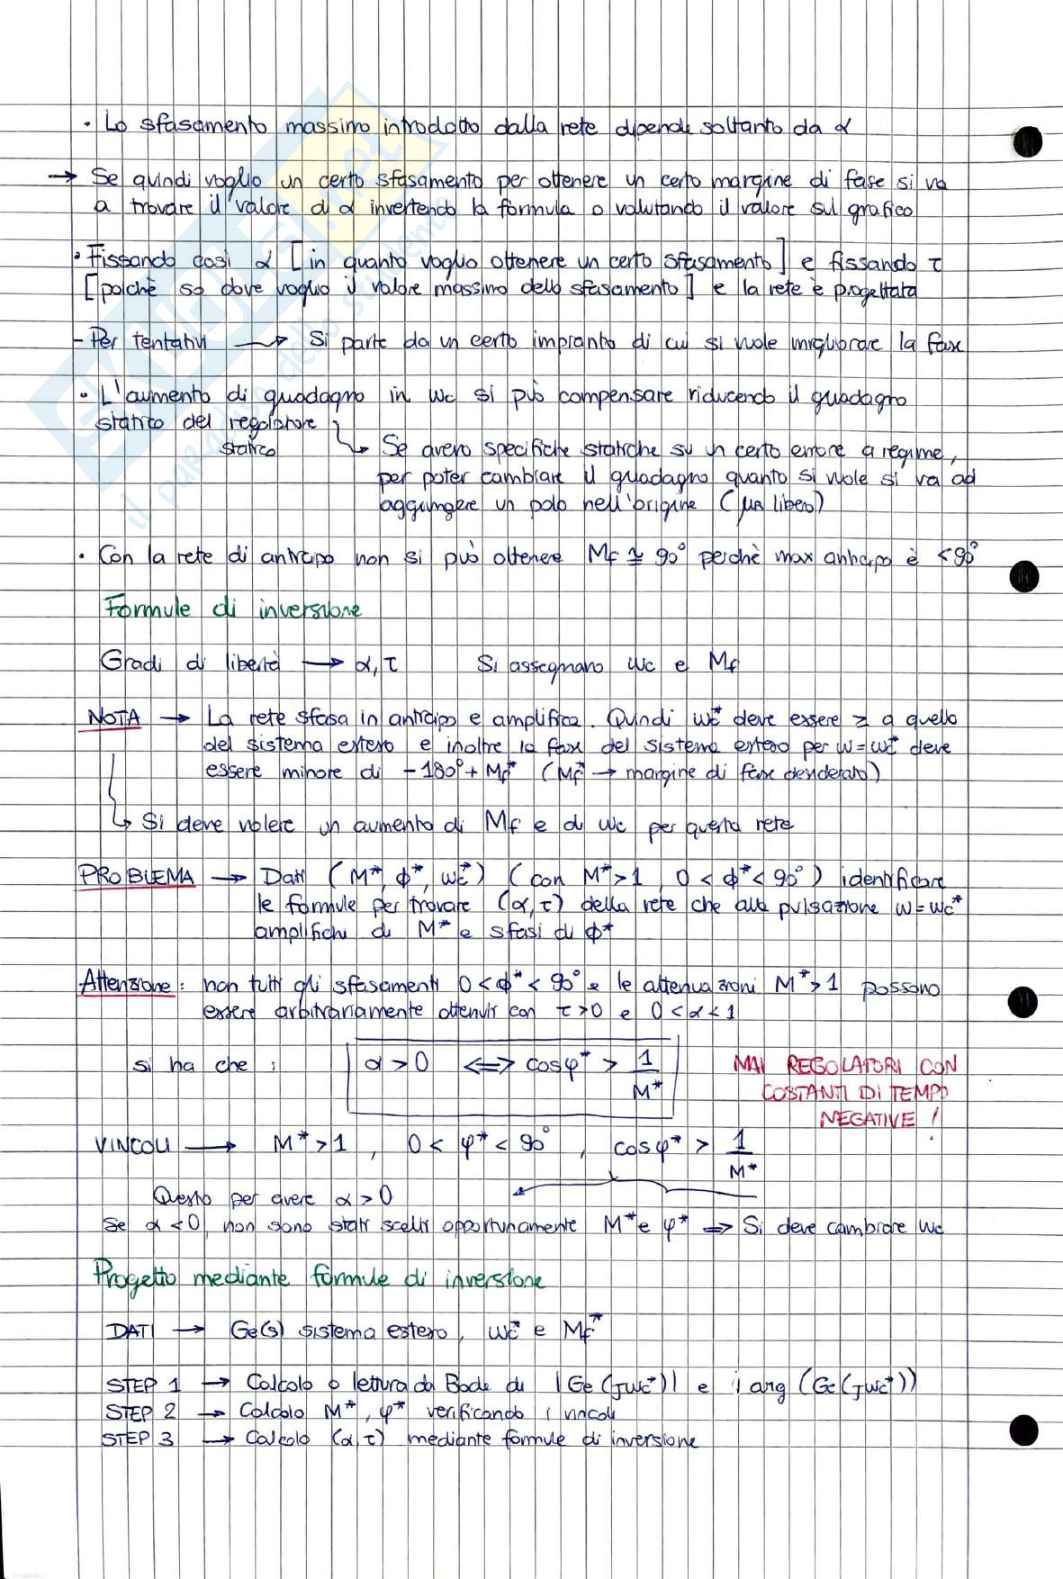 • Lo sfasamento massimo introdotto dalla rete dipende soltanto da α
→ Se quindi voglio un certo sfasamento per ottenere un certo margine di fase si va
a trovare il valore di α invertendo la formula o valutando il valore sul grafico
• Fissando così α [in quanto voglio ottenere un certo sfasamento] e fissando τ
[poichè so dove voglio il valore massimo dello sfasamento] e la rete è progettata
- Per tentativi → Si parte da un certo impianto di cui si vuole migliorare la fase
• L'aumento di guadagno in ωc si può compensare riducendo il guadagno
statico del regolatore
statico
↳ Se avevo specifiche statiche su un certo errore a regime,
per poter cambiare il guadagno quanto si vuole si va ad
aggiungere un polo nell'origine (μR libero)
• Con la rete di anticipo non si può ottenere Mf ≅ 90° perchè max anticipo è < 90°
Formule di inversione
Gradi di libertà → α, τ Si assegnano ωc e Mf
NOTA → La rete sfasa in anticipo e amplifica. Quindi ωc* deve essere ≥ a quello
del sistema esteso e inoltre la fase del sistema esteso per ω=ωc* deve
essere minore di -180°+Mf* (Mf* → margine di fase desiderato)
↳ Si deve volere un aumento di Mf e di ωc per questa rete
PROBLEMA → Dati (M*, φ*, ωc*) (con M*>1, 0<φ*<90°) identificare
le formule per trovare (α,τ) della rete che alla pulsazione ω=ωc*
amplifichi di M* e sfasi di φ*
Attenzione: non tutti gli sfasamenti 0<φ*<90° e le attenuazioni M*>1 possono
essere arbitrariamente ottenuti con τ>0 e 0<α<1
si ha che : α>0 ⟺ cosφ* > 1/M*
MAI REGOLATORI CON
COSTANTI DI TEMPO
NEGATIVE !
VINCOLI → M*>1 , 0<φ*<90° , cosφ* > 1/M*
Questo per avere α>0
Se α<0, non sono stati scelti opportunamente M* e φ* ⇒ Si deve cambiare ωc
Progetto mediante formule di inversione
DATI → Ge(s) sistema esteso, ωc* e Mf*
STEP 1 → Calcolo o lettura da Bode di |Ge(jωc*)| e i arg (Ge(jωc*))
STEP 2 → Calcolo M*, φ* verificando i vincoli
STEP 3 → Calcolo (α,τ) mediante formule di inversione